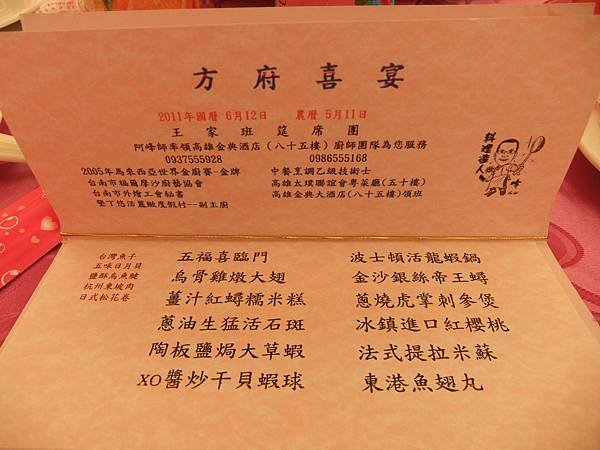 方府喜宴
2011年國曆 6月12日 農曆 5月11日
王家班筵席團
阿峰師率領高雄金典酒店(八十五樓)廚師團隊為您服務
0937555928 0986555168
2005年馬來西亞世界金廚賽-金牌 中餐烹調乙級技術士
台南市福爾摩沙廚藝協會 高雄太璞聯誼會粵菜廳(五十樓)
台南市外燴工會秘書 高雄金典大酒店(八十五樓)領班
墾丁悠活麗緻度假村--副主廚
料理達人
峰
台灣魚子
五味日月貝
鹽酥烏魚腱
杭州東坡肉
日式松花卷
五福喜臨門
烏骨雞燉大翅
薑汁紅蟳糯米糕
蔥油生猛活石斑
陶板鹽焗大草蝦
XO醬炒干貝蝦球
波士頓活龍蝦鍋
金沙銀絲帝王蟳
蔥燒虎掌刺參煲
冰鎮進口紅櫻桃
法式提拉米蘇
東港魚翅丸